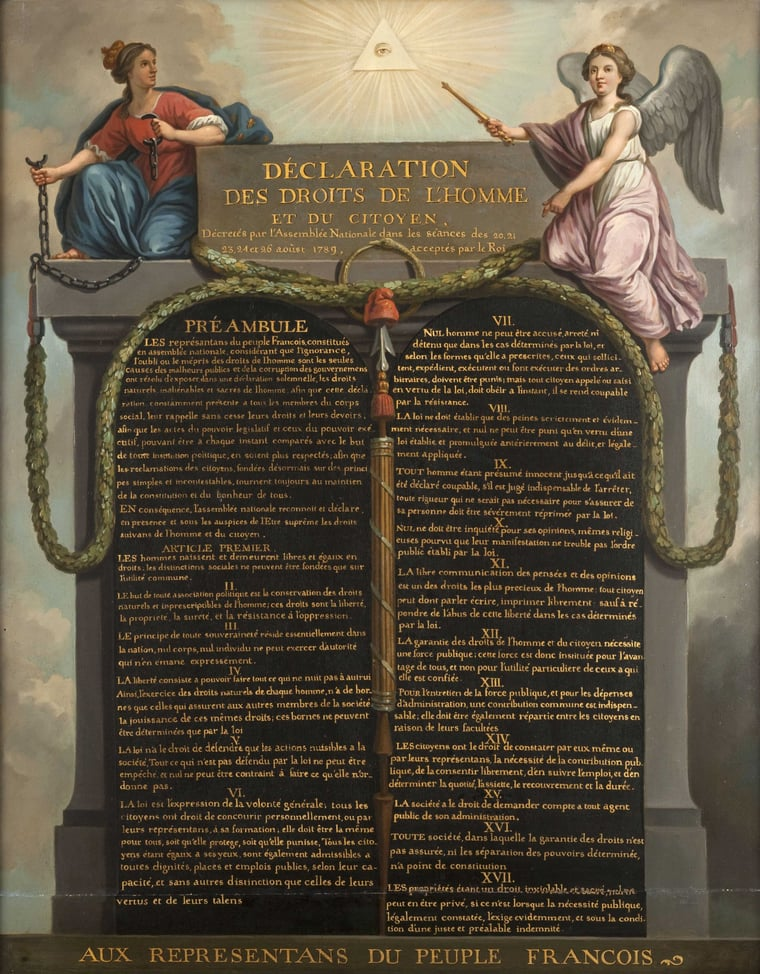 DÉCLARATION
DES DROITS DE L'HOMME
ET DU CITOYEN,
Décretés par l'Assemblée Nationale dans les séances des 20, 21
23, 24 et 26 août 1789, acceptés par le Roi
PRÉAMBULE
LES représentans du peuple Francois, constitués
en assemblée nationale, considérant que l'ignorance,
l'oubli ou le mépris des droits de l'homme sont les seules
causes des malheurs publics et de la corruption des gouvernemens
ont résolu d'exposer dans une déclaration solemnelle, les droits
naturels, inaliénables et sacrés de l'homme; afin que cette décla
ration, constamment présente a tous les membres du corps
social, leur rappelle sans cesse leurs droits et leurs devoirs;
afin que les actes du pouvoir legislatif et ceux du pouvoir exé
cutif, pouvant être a chaque instant comparés avec le but
de toute institution politique, en soient plus respectés; afin que
les reclamations des citoyens, fondées désormais sur des princi
pes simples et incontestables, tournent toujours au maintien
de la constitution et du bonheur de tous.
EN conséquence, l'assemblée nationale reconnoit et déclare,
en presence et sous les auspices de l'Etre suprême les droits
suivans de l'homme et du citoyen.
ARTICLE PREMIER.
LES hommes naissent et demeurent libres et égaux en
droits, les distinctions sociales ne peuvent être fondées que sur
l'utilité commune.
II.
LE but de toute association politique est la conservation des droits
naturels et inprescriptibles de l'homme; ces droits sont la liberté,
la propriété, la sureté, et la résistance à l'oppression.
III.
LE principe de toute souveraineté réside essentiellement dans
la nation, nul corps, nul individu ne peut exercer d'autorité
qui n'en émane expressément.
IV
LA liberté consiste a pouvoir faire tout ce qui ne nuit pas à autrui
Ainsi, l'exercice des droits naturels de chaque homme, n'a de bor-
nes que celles qui assurent aux autres membres de la société
la jouissance de ces mêmes droits; ces bornes ne peuvent
être déterminées que par la loi
V.
LA loi n'a le droit de défendre que les actions nuisibles a la
société. Tout ce qui n'est pas défendu par la loi ne peut être
empêché, et nul ne peut être contraint à faire ce qu'elle n'or-
donne pas.
VI.
LA loi est l'expression de la volonté générale; tous les
citoyens ont droit de concourir personnellement, ou par
leurs représentans, à sa formation; elle doit être la même
pour tous, soit qu'elle protege, soit qu'elle punisse, Tous les cito
yens étant égaux à ses yeux, sont également admissibles à
toutes dignités, places et emplois publics, selon leur ca-
pacité, et sans autres distinction que celles de leurs
vertus et de leurs talens
VII.
NUL homme ne peut être accusé, arreté, ni
détenu que dans les cas déterminés par la loi, et
selon les formes qu'elle a prescrites, ceux qui sollici-
tent, expédient, exécutent ou font exécuter des ordres ar-
bitraires, doivent être punis; mais tout citoyen appelé ou saisi
en vertu de la loi, doit obéir a l'instant, il se rend coupable
par la résistance.
VIII.
LA loi ne doit établir que des peines strictement et évidem-
ment nécessaire, et nul ne peut être puni qu'en vertu d'une
loi établie et promulguée antérierement au délit, et légale-
ment appliquée.
IX.
TOUT homme étant présumé innocent jusqu'a ce qu'il ait
été déclaré coupable, s'il est jugé indispensable de l'arrêter,
toute rigueur qui ne serait pas nécessaire pour s'assurer de
sa personne doit être sévèrement réprimée par la loi.
X.
NUL ne doit être inquiété pour ses opinions, mêmes religi-
euses pourvu que leur manifestation ne trouble pas l'ordre
public établi par la loi.
XI.
LA libre communication des pensées et des opinions
est un des droits les plus precieux de l'homme; tout citoyen
peut dont parler écrire, imprimer librement: sauf à ré-
pondre de l'abus de cette liberté dans les cas déterminés
par la loi.
XII.
LA garantie des droits de l'homme et du citoyen nécessite
une force publique; cette force est donc instituée pour l'avan-
tage de tous, et non pour l'utilité particulière de ceux a qui
elle est confiée.
XIII.
POUR l'entretien de la force publique, et pour les dépenses
d'administration, une contribution commune est indispen-
sable; elle doit être également répartie entre les citoyens en
raison de leurs facultées
XIV.
LES citoyens ont le droit de constater par eux même ou
par leurs représentans, la nécessité de la contribution pub-
lique, de la consentir librement, d'en suivre l'emploi, et d'en
déterminer la quotité, l'assiette, le recouvrement et la durée.
XV.
LA société a le droit de demander compte a tout agent
public de son administration.
XVI.
TOUTE société, dans laquelle la garantie des droits n'est
pas assurée, ni les séparation des pouvoirs déterminée,
n'a point de constitution
XVII.
LES propriétés étant un droit inviolable et sacré, nul ne
peut en être privé, si ce n'est lorsque la nécessité publique,
légalement constatée, l'exige evidemment, et sous la condi-
tion d'une juste et préalable indemnité.
AUX REPRESENTANS DU PEUPLE FRANCOIS